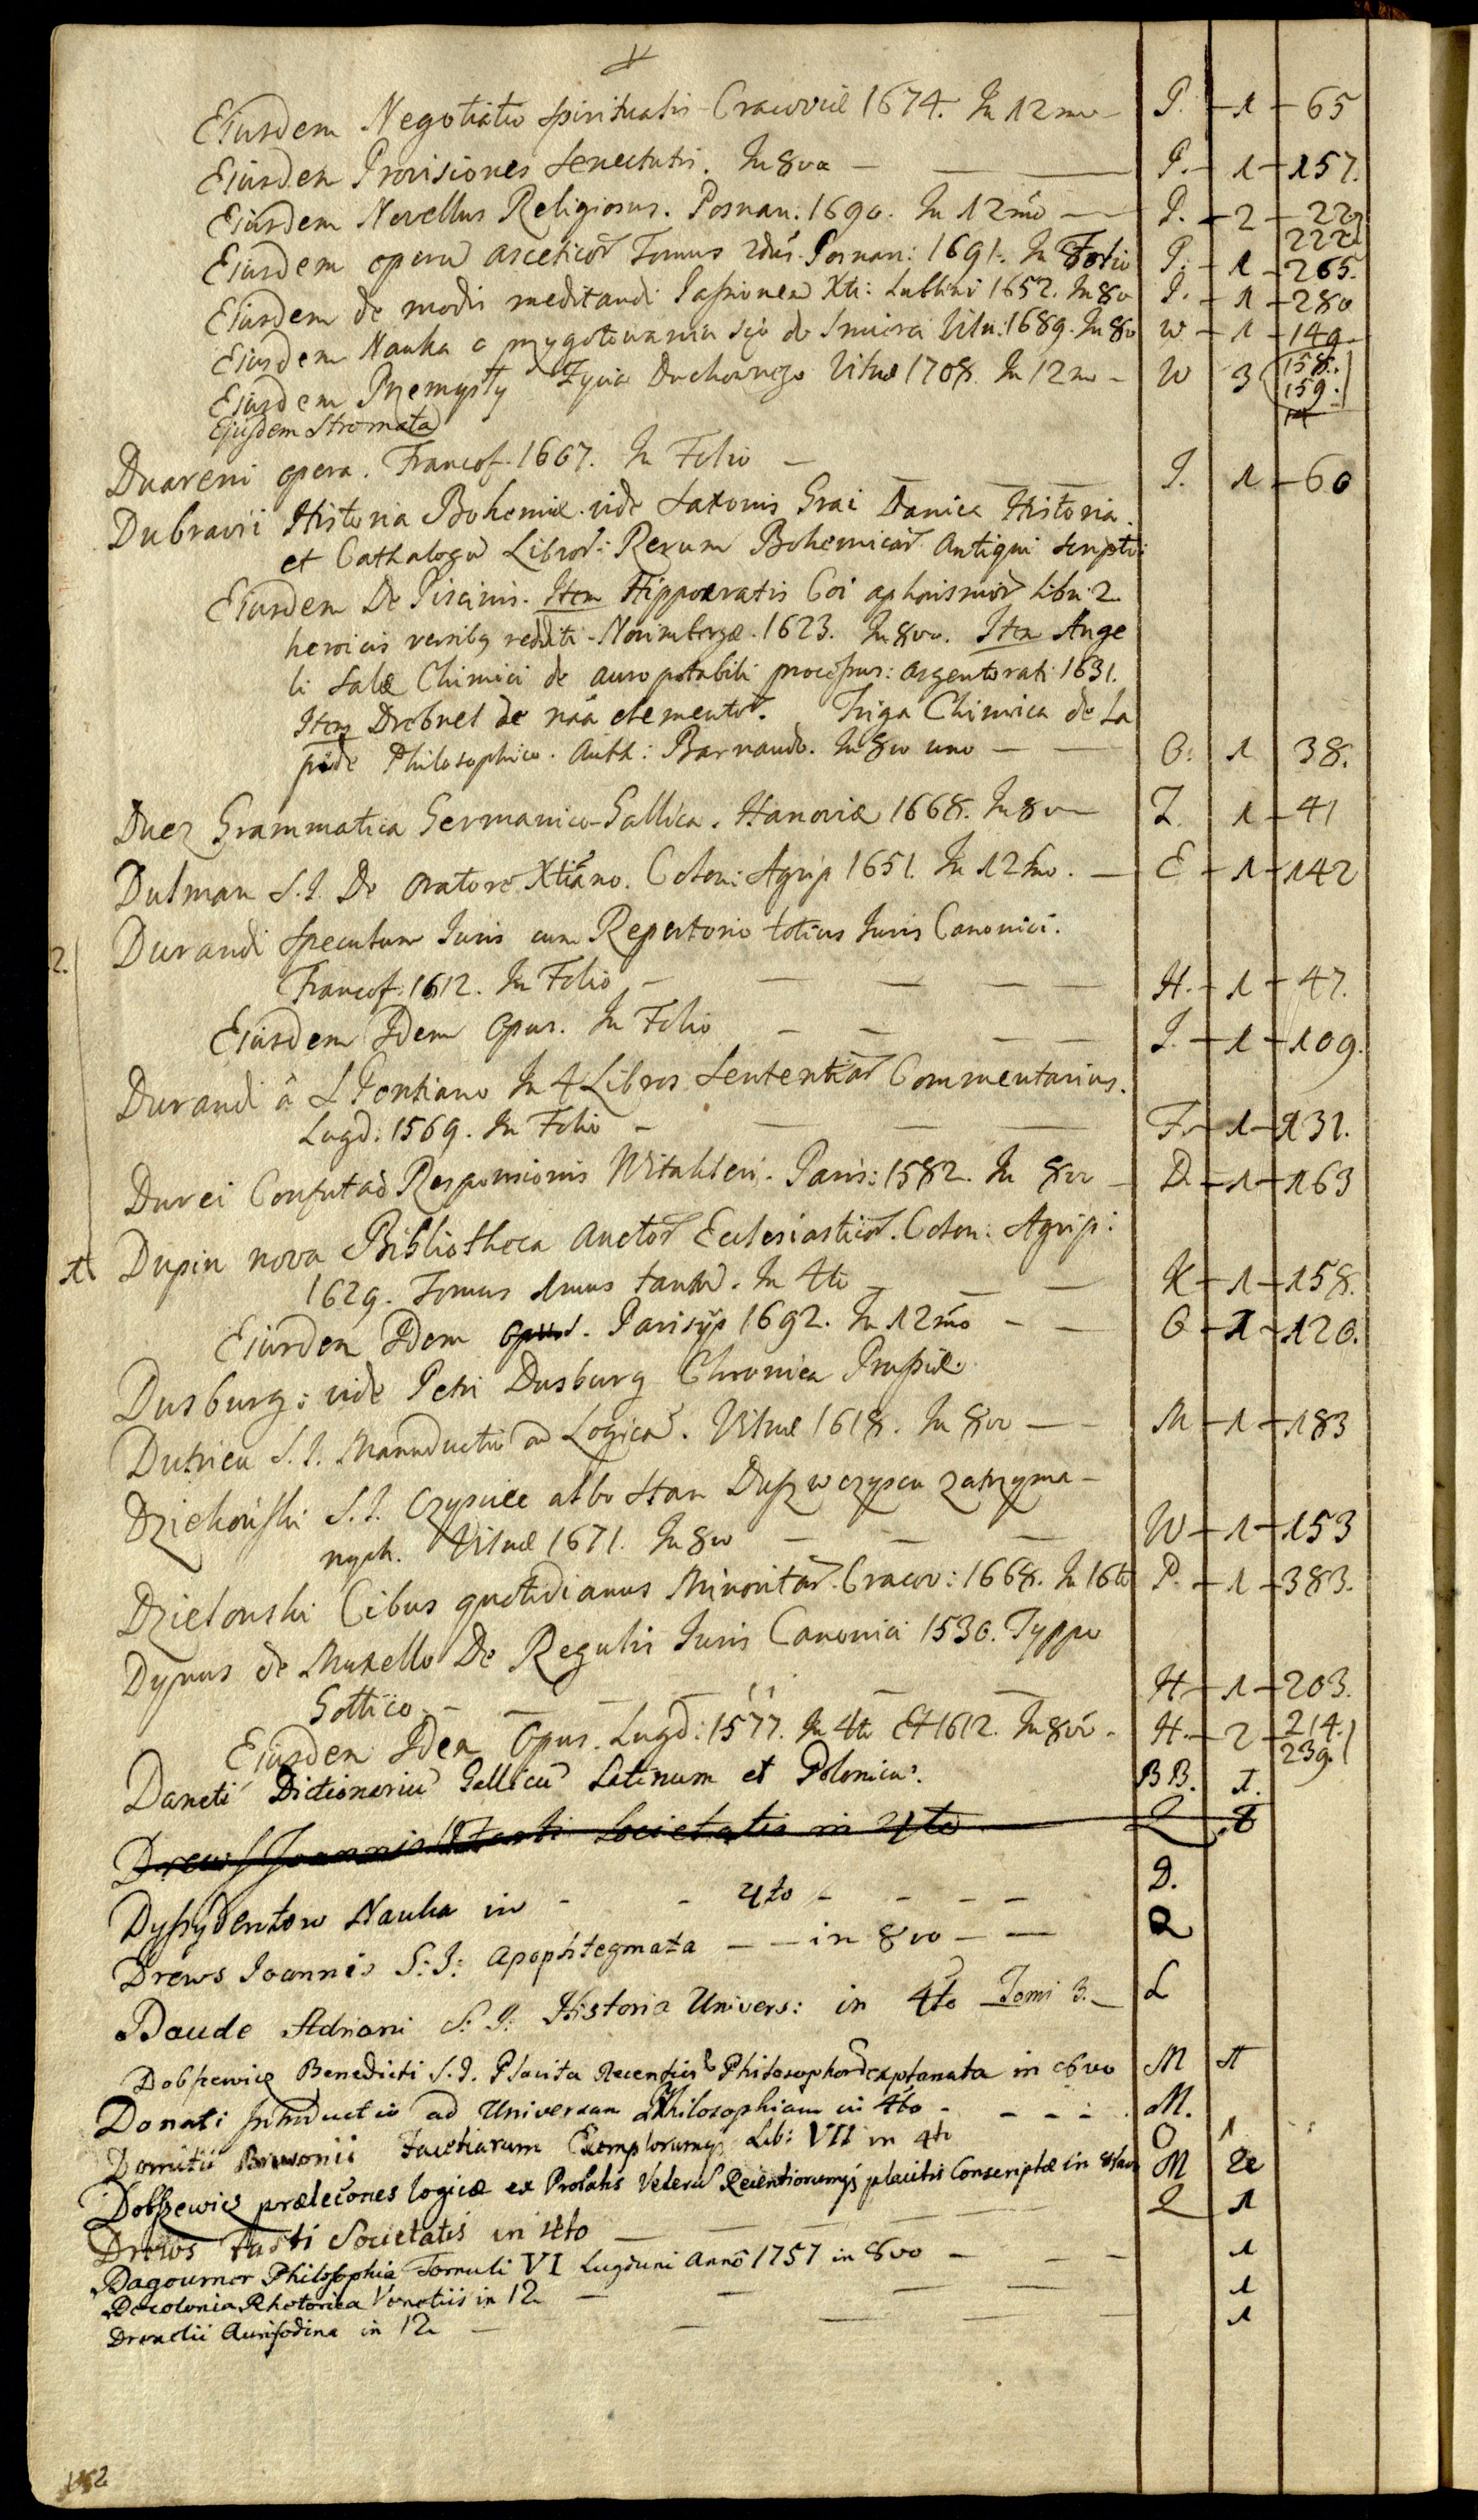 Ejusdem Negotiatio spiritualis Cracoviæ 1674. In 12mo P. 1 65
Ejusdem Provisiones Senectutis. In 8vo P. 1 157.
Ejusdem Novellus Religiosus. Posnan: 1690. In 12mo P. 2 22
222
Ejusdem opera asceticor Tomus 2dus. Posnan: 1691. In Folio P. 1 265.
Ejusdem de modis meditandi Passionem Xti: Lublini 1652. In 8vo P. 1 280
Ejusdem Nauka o przygotowaniu się do Smierci Viln: 1689. In 8vo W 1 149
Ejusdem Przemysły Zycia Duchownego Vilnæ 1708. In 12mo W 3 158.
159.
Ejusdem Stromata
Duareni opera. Francof. 1607. In Folio J. 1 60
Dubravii Historia Bohemiæ vide Saxonis Grai Danica Historia.
et Cathalogu Libror: Rerum Bohemicar Antiqui Scripto:
Ejusdem De Piscinis. Item Hippocratis Coi aphorismor libri 2
heroicis versibq redditi Norimbergæ. 1623. In 8vo. Item Ange
li Salæ Chimici de auro potabili processus: Argentorati 1631.
Item Drebnel de nãa elementor. Triga Chimica de La
pide Philosophico. Auth: Barnaudo. In 8vo uno O. 1 38.
Duez Grammatica Germanico-Gallica. Hanoviæ 1668. In 8vo Z. 1 41
Dulman S.J. De oratore Xtiano. Coloni Agrip 1651. In 12mo. E 1 142
2. Durandi Speculum Juris cum Repertorio totius Juris Canonici.
Francof: 1612. In Folio H. 1 47.
Ejusdem Idem Opus. In Folio J. 1 109.
Durandi â S Portiano In 4 Libros Sententiar Commentarius.
Lugd: 1569. In Folio F. 1 131.
Durei Confutaõ Responsionis Witakleri. Paris: 1582. In 8vo D. 1 163
1 Dupin nova Bibliotheca Auctor Ecclesiasticor. Colon: Agrip:
1629. Tomus 1mus tantu. In 4to K 1 158.
Ejusdem Idem opus. Parisijs 1692. In 12mo O 1 120.
Dusburg: vide Petri Dusburg Chronica Prussiæ.
Dutrieu S.J. Manuductio ad Logica. Vilnæ 1618. In 8vo M 1 183
Dziekoński S.J. Czysciec albo Stan Dusz w czyscu zatrzyma-
nych. Vilnæ 1671. In 8vo W 1 153
Dzielonski Cibus quotidianus Minoritar. Cracov: 1668. In 16to P. 1 383.
Dynus de Muxello De Regulis Juris Canonici 1530. Typpo
Gottico H 1 203.
Ejusdem Idem Opus. Lugd: 1577. In 4to Et 1612. In 8vo H. 2 214.
239.
Daneti Dictionariu Gallicu Latinum et Polonicu. BB. 1.
Drews Joannis Fasti Societatis in 4to Q
Dyssydentow Nauka in 4to D.
Drews Joannis S:J: Apophtegmata in 8vo Q
Daude Adriani S:J: Historia Univers: in 4to Tomi 3. L
Dobszewicz Benedicti S.J. Placita Recentiu Philosophor explanata in 8vo M 1
Donati Introductio ad Universam Philosophiam in 4to M.
Domitii Brusonii Facetiarum Exemplorumq Lib: VII in 4to O 1
Dobszewicz prælecões logicæ ex Probatis Veteru Recentiorumq placitis Conscriptæ in 8tavo M 2
Drews Fasti Societatis in 4to Q 1
Dagoumer Philosophia Tomuli VI Lugduni Anno 1757 in 8vo 1
Decolonia Rhetorica Venetiis in 12 1
Drexelii Aurifodina in 12 1
152